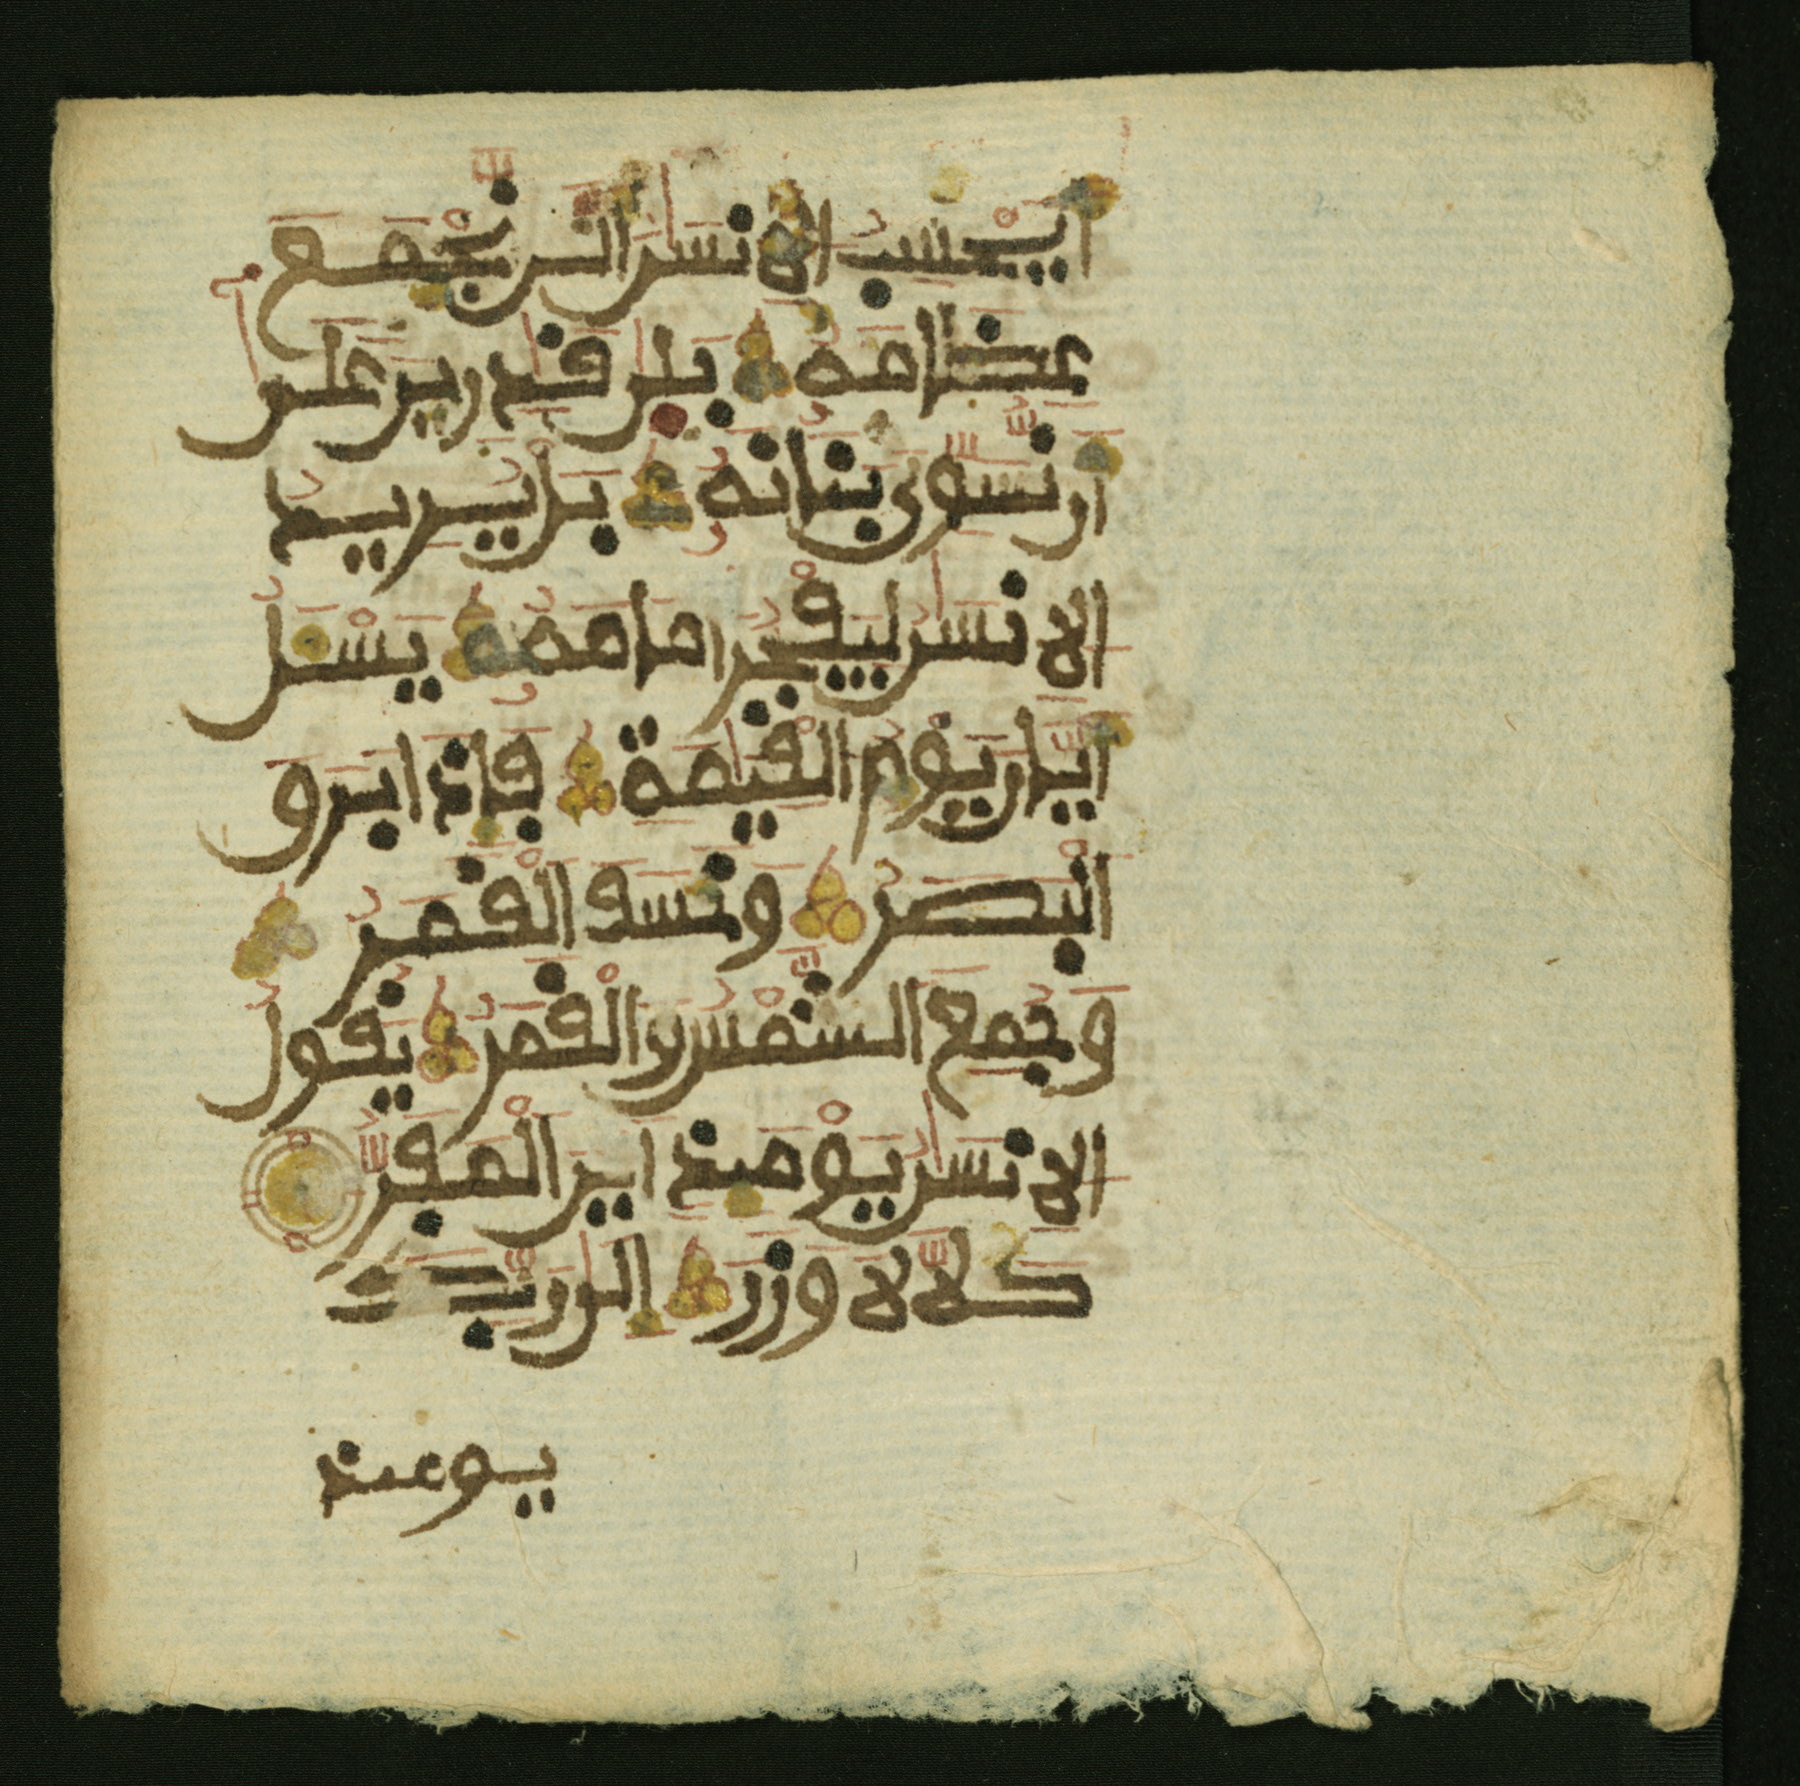 ايحسب الانسن الن نجمع
عظامه بلى قدرين على
ان نسوي بنانه بل يريد
الانسن ليفجر امامه يسئل
ايان يوم القيمة فاذا برق
البصر وخسف القمر
وجمع الشمس والقمر يقول
الانسن يومئذ اين المفر
كلا لا وزر الى ربك
يومئذ